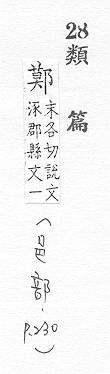 28
類篇
鄚
末各切說文
涿郡縣文一
(邑部, p.230)